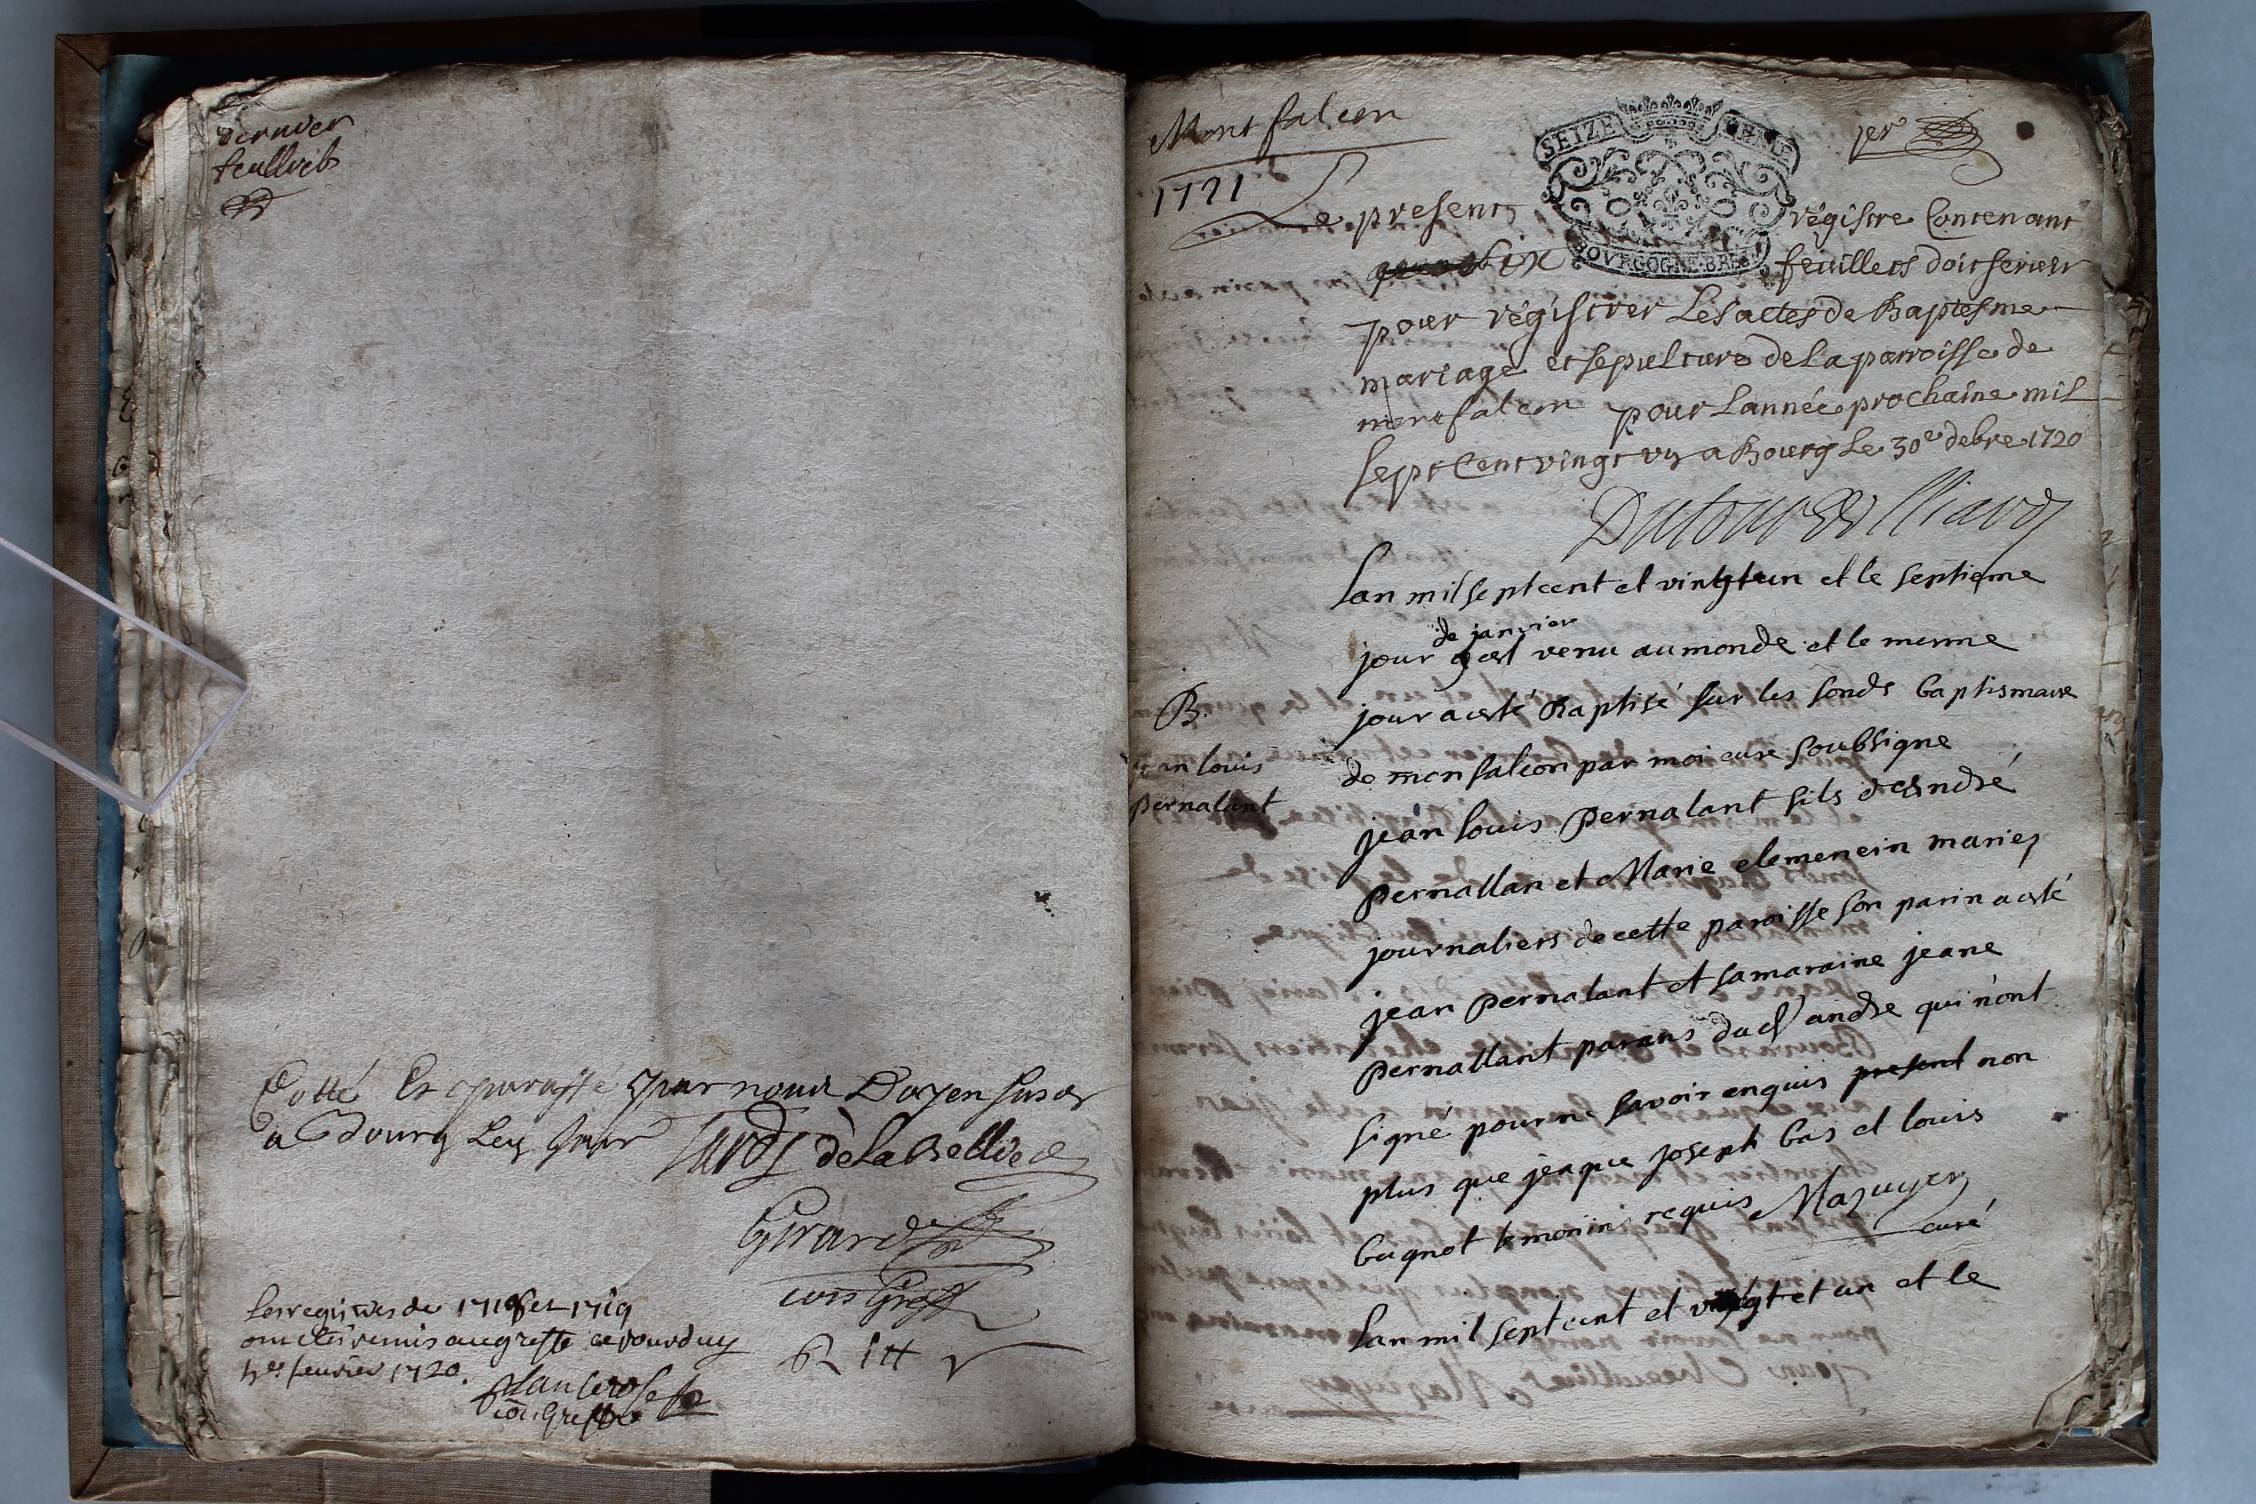 dernier
feullieb
Cotté et paraffé par nous Doyen susdt
a Bourg Les jour
de la
Girard
com Greff
les registres de 1718 et 1719
ont esté remis au greffe ce jourduy
fevrier 1720.
com. Greffre
Montfalcon
1721
SEIZE DENIE
BOURGOGNE BRES
1er
Le present régistre Contenant
six feuillets doit servir
pour régistrer Les actes de Baptesme
mariage et sepulture de La parroisse de
montfalcon pour Lannée prochaine mil
sept Cent vingt un a Bourg Le 30e debre 1720
Lan mil sept cent et vingt un et le septieme
de janvier
jour est venu au monde et le mesme
jour a esté Baptisé sur les fonds baptismaux
B.
jean louis
pernalant
de monfalcon par moi cure soubsigne
jean louis pernalant fils dandré
pernallan et Marie clemencin mariez
journaliers de cette paroisse son parin a esté
jean pernalant et sa maraine jeane
pernallant parans dud andre qui nont
signé pour ne savoir enquis present non
plus que jeaque joseph bas et louis
bugnot temoiins requis Mazuyer
curé
Lan mil sept cent et vingt et un et le